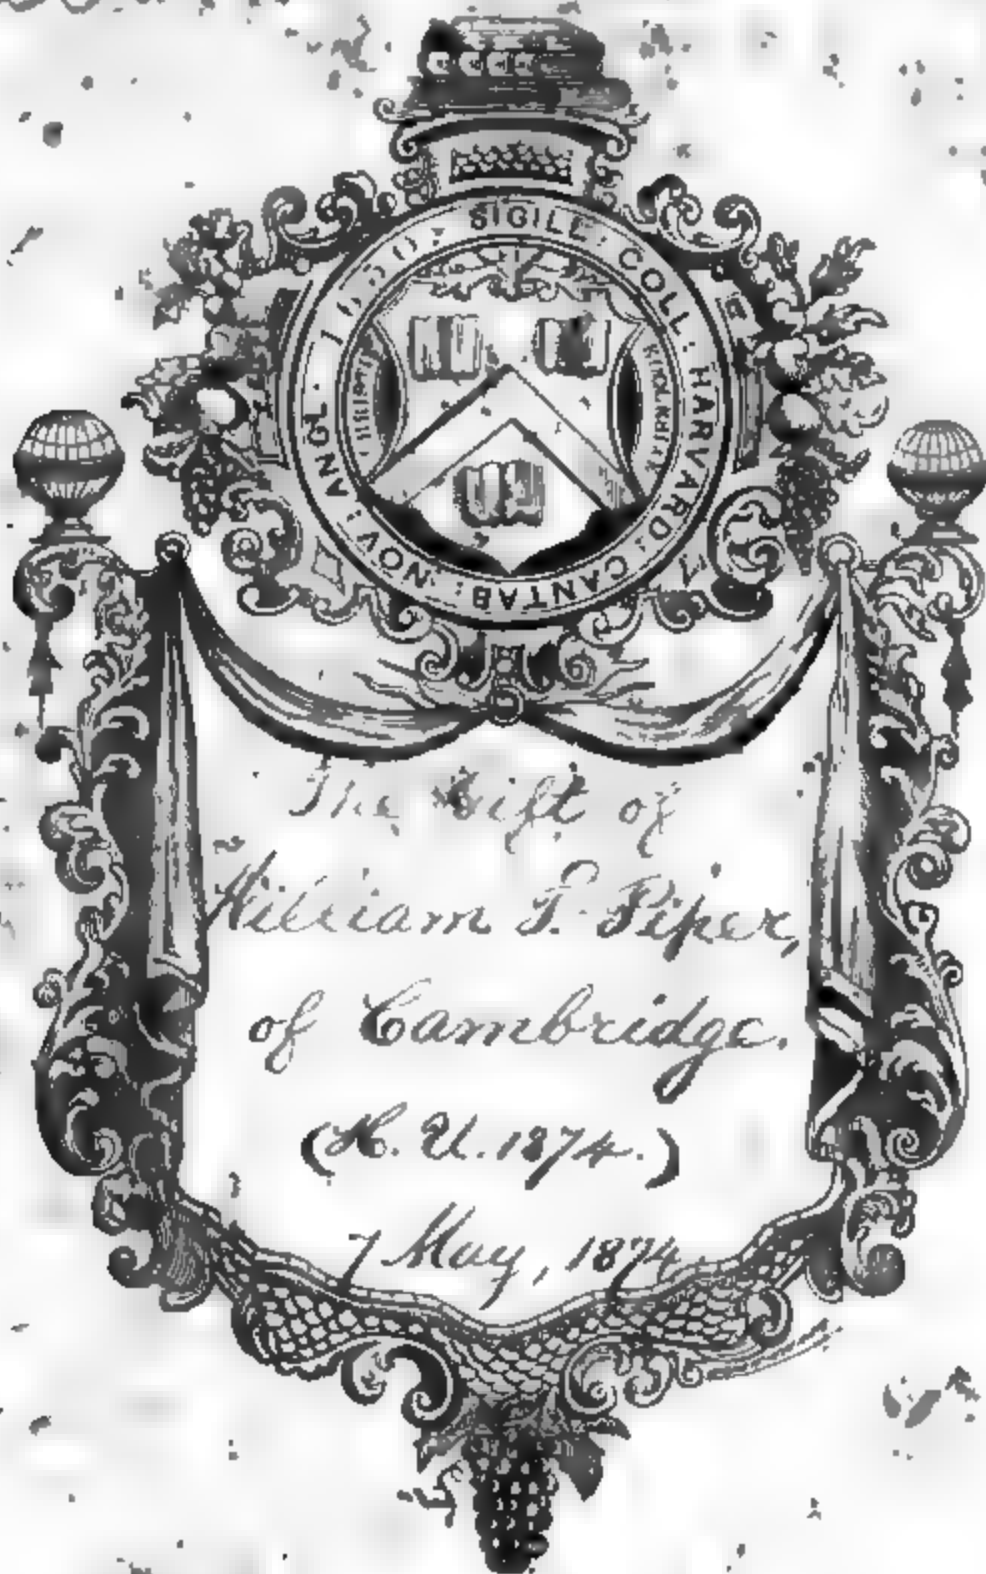 SIGILL: COLL: HARVARD: CANTAB: NOV: ANGL. 1650.
The Gift of
William T. Piper,
of Cambridge.
(H. U. 1874.)
7 May, 1874.